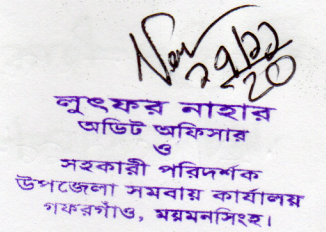 লুৎফর নাহার
অডিট অফিসার
ও
সহকারী পরিদর্শক
উপজেলা সমবায় কার্যালয়
গফরগাঁও, ময়মনসিংহ।